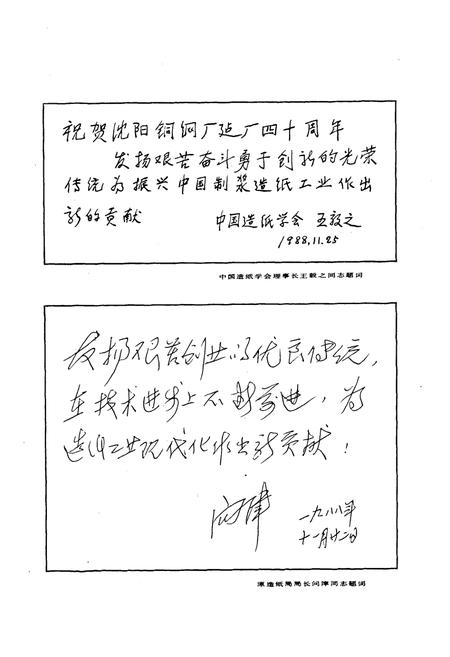 祝贺沈阳铜网厂建厂四十周年
发扬艰苦奋斗勇于创新的光荣
传统为振兴中国制浆造纸工业作出
新的贡献
中国造纸学会 王毅之
1988.11.25
中国造纸学会理事长王毅之同志题词
发扬艰苦创业的优良传统，
在技术进步上不断前进，为
造纸工业现代化作出新贡献！
一九八八年
十一月廿二日
原造纸局局长问津同志题词